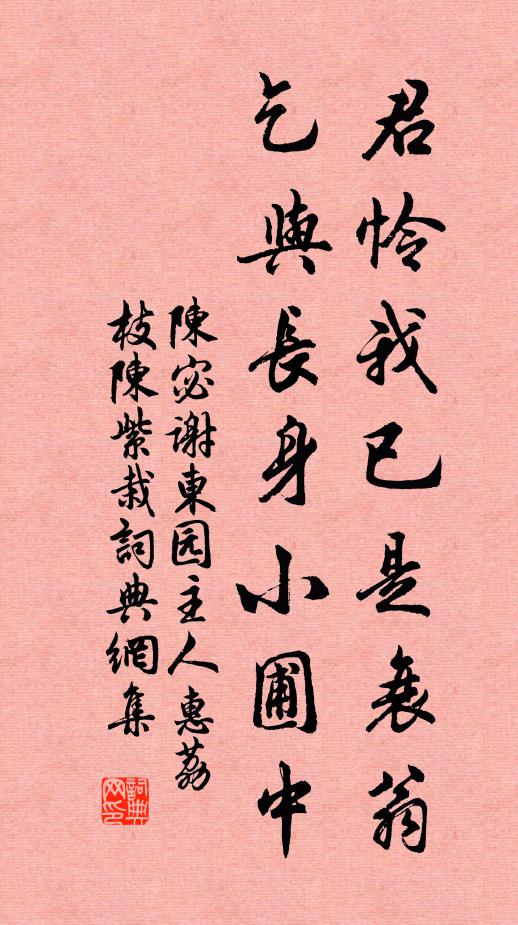 君怜我已是衰翁
乞與長身小圃中
陳宓谢東园主人惠荔
枝陳紫栽詞典網集
詞典
网印